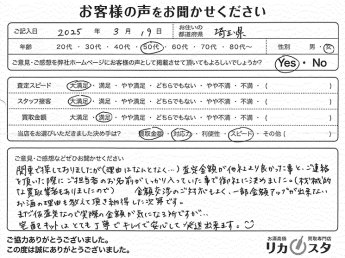 お客様の声をお聞かせください
ご記入日 2025 年 3 月 19 日 お住いの都道府県 埼玉県
年齢 20代 ・ 30代 ・ 40代 ・ 50代 ・ 60代 ・ 70代 ・ 80代〜 性別 男 ・ 女
ご意見・ご感想を弊社ホームページにお客様の声として掲載させて頂いてもよろしいでしょうか? Yes ・ No
査定スピード 大満足 ・ 満足 ・ やや満足 ・ どちらでもない ・ やや不満 ・ 不満 ・ ( )
スタッフ接客 大満足 ・ 満足 ・ やや満足 ・ どちらでもない ・ やや不満 ・ 不満 ・ ( )
買取金額 大満足 ・ 満足 ・ やや満足 ・ どちらでもない ・ やや不満 ・ 不満 ・ ( )
当店をお選びいただきました決め手は? 買取金額 ・ 対応力 ・ 利便性 ・ スピード ・ その他 ( )
ご意見・ご感想などぜひお聞かせください
関東で探しておりましたが(理由はなんとなく…)査定金額が他社より良かった事と、ご連絡
を頂いた際にご担当者のお名前がしっかり入っていた事で御社に決めました。(機械的
な買取業者もありましたので) 金額交渉のご対応もよく、一部金額アップが出来ない
お酒の理由も教えて頂き納得した次第です。
まだ仮査定なので実際の金額が気になる所ですが…
宅配キットはとても丁寧でキレイで安心して発送出来ます。
ご協力ありがとうございました。
この度は誠にありがとうございました。
お酒高価 買取専門店
リカスタ